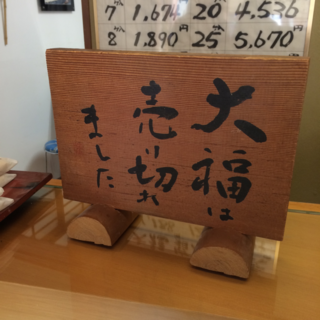 7 1,674 20 4,536
8 1,890 25 5,670
大福は
売り切れ
ました